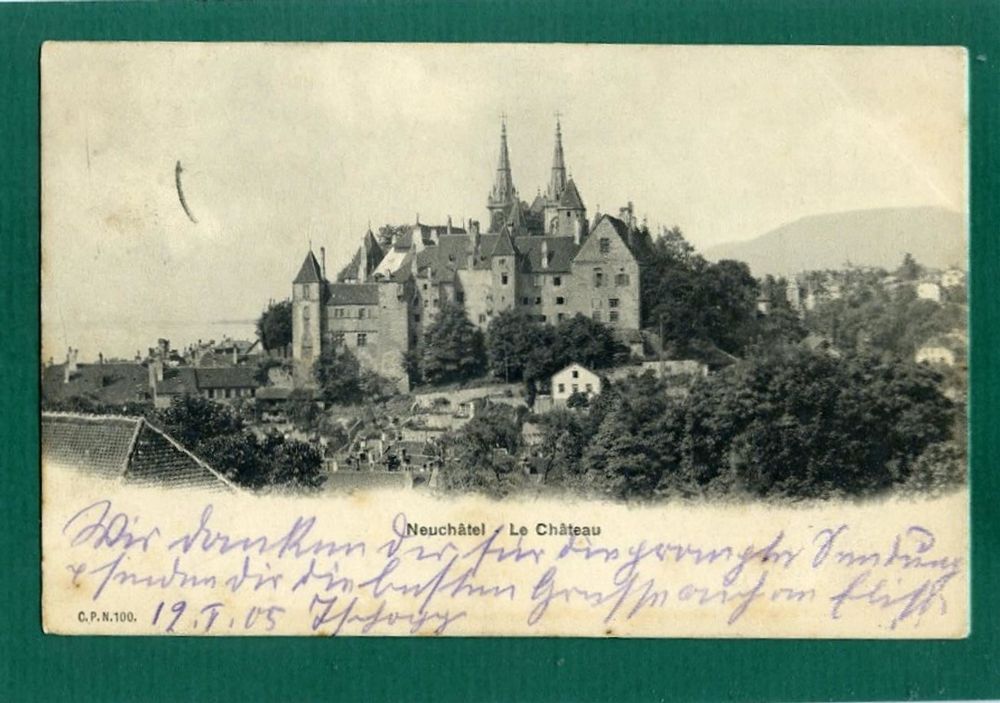 Neuchâtel Le Château
Wir danken dir für die prompte Sendung
& senden dir die besten Grüsse auch an
C.P.N.100. 19. I. 05